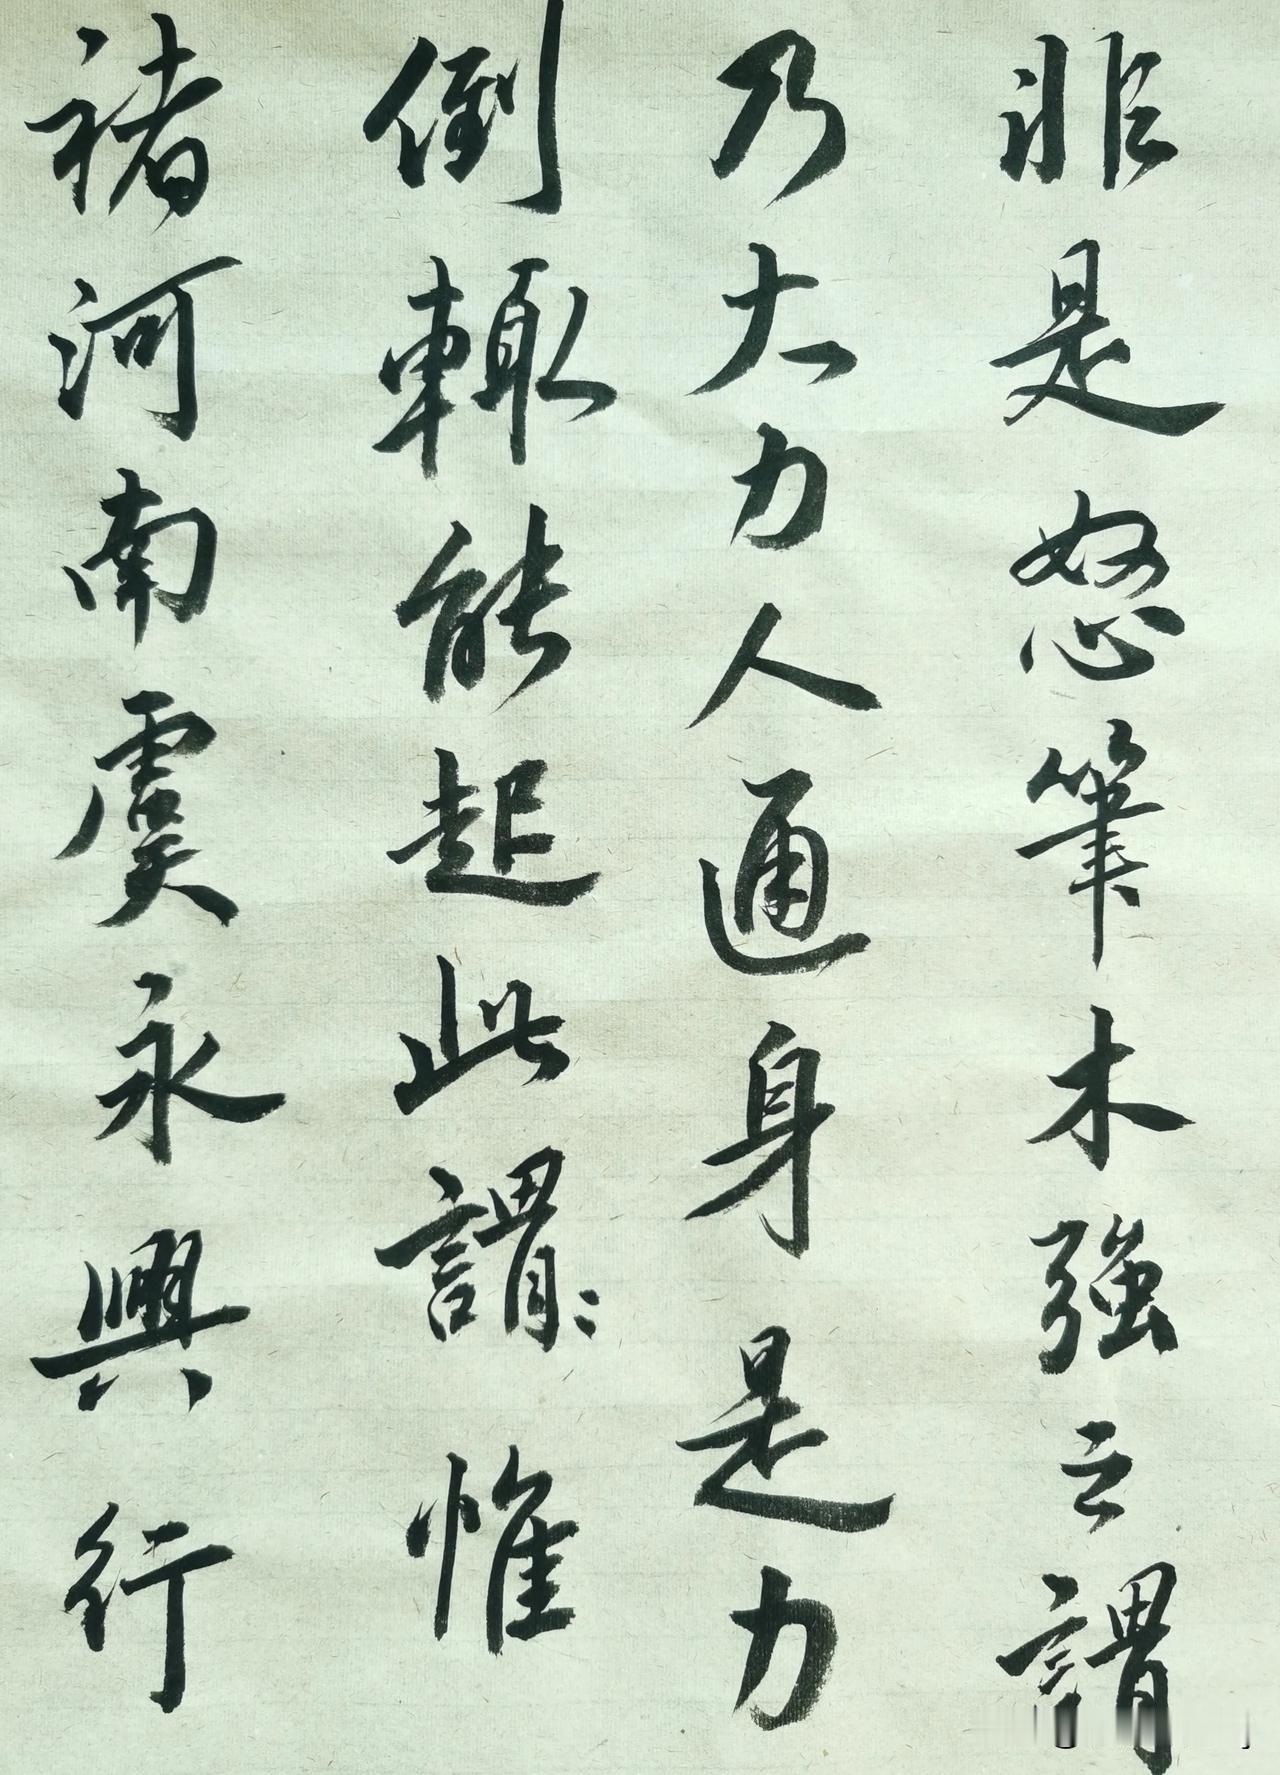 非是怒筆木強之謂
乃大力人通身是力
倒輒能起此謂〻惟
褚河南虞永興行